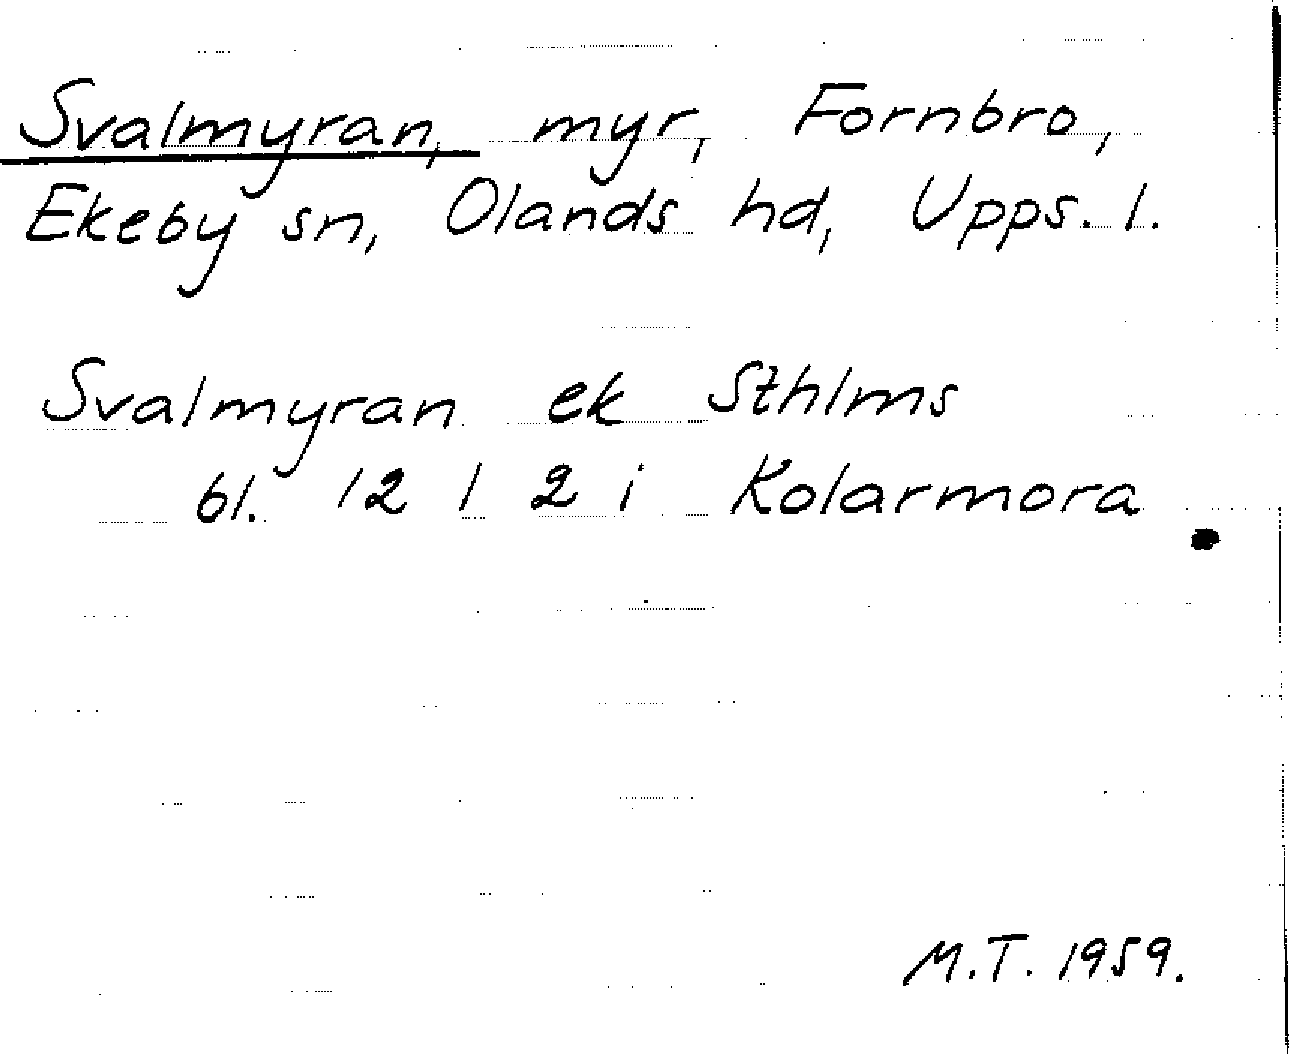 Svalmyran, myr, Fornbro,
Ekeby sn, Olands hd, Upps. l.
Svalmyran ek Sthlms
bl. 12 1 2 i Kolarmora
M.T. 1959.